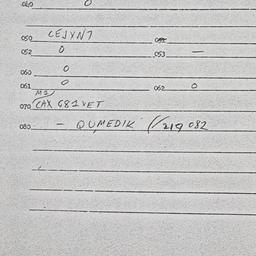 040 0
050 CEJXN7
052 0 053 —
060 0
061 0 062 0
M1/
070 CAX 681 VET
080 — QUMEDIK 219 082